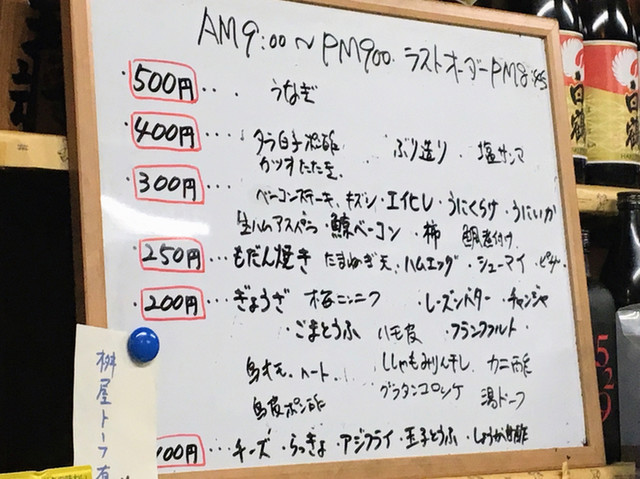 AM9:00〜PM900. ラストオーダーPM8:45
500円 ... うなぎ
400円 ... タラ白子ポン酢 ぶり造り . 塩サンマ
カツオたたき.
300円 ... ベーコンステーキ. キズシ. エイヒレ . うにくらげ . うにいか
生ハムアスパラ . 鯨ベーコン . 柿 鯛煮付け
250円 ... もだん焼き たまねぎ天. ハムエッグ . シューマイ . ピザ.
200円 ... ぎょうざ 梅ニンニク レーズンバター . チャンジャ
. ごまとうふ ハモ皮 フランクフルト .
鳥オム. ハート. ししゃもみりん干し カニ酢
鳥皮ポン酢 グラタンコロッケ 湯ドーフ
100円 ... チーズ . らっきょ . アジフライ . 玉子とうふ . しょうが甘酢
桝屋トーフ有
白鶴
529